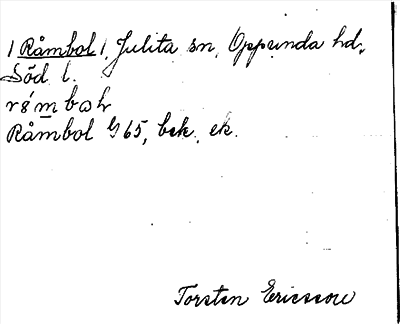 / Råmbol /, Julita sn, Oppunda hd,
Söd l.
Råmbol G 65, bek. ek.
Torsten Ericsson